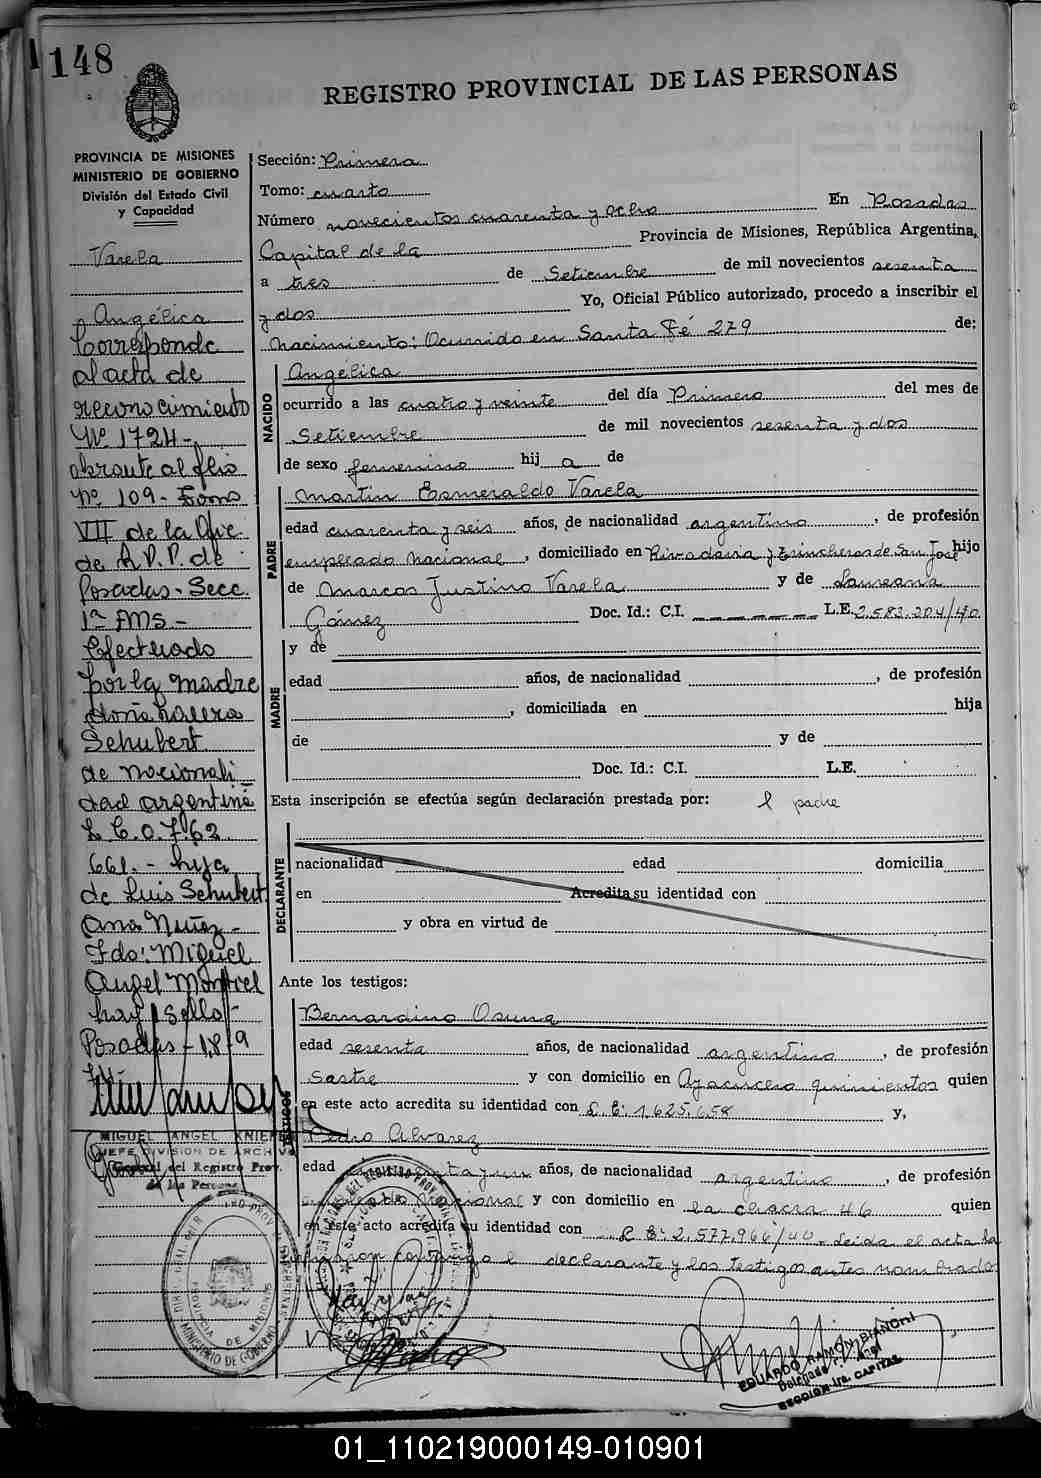 148
REGISTRO PROVINCIAL DE LAS PERSONAS
PROVINCIA DE MISIONES
MINISTERIO DE GOBIERNO
División del Estado Civil
y Capacidad
Varela
Angélica
Corresponde
al acta de
reconocimiento
Nº 1724-
obrante al flio
Nº 109 - Tomo
VII de la
de R.P.P. de
Posadas - Secc.
1ª
Efectuado
por la madre
doña
Schubert
de nacionali
dad argentina
L.C.0.7.62
661.- hija
de Luis Schubert
Ana Nuñez -
Fdo: Miguel
Angel Montiel
hay sello -
Posadas - 18-9
MIGUEL ANGEL KNIE
JEFE DIVISION DE ARCHIV
General del Registro Prov.
de las Personas
Sección: Primera
Tomo: cuarto
Número novecientos cuarenta y ocho En Posadas
Capital de la Provincia de Misiones, República Argentina,
a tres de Setiembre de mil novecientos sesenta
y dos Yo, Oficial Público autorizado, procedo a inscribir el
nacimiento: Ocurrido en Santa Fé 279 de:
NACIDO
Angélica
ocurrido a las cuatro y veinte del día Primero del mes de
Setiembre de mil novecientos sesenta y dos
de sexo femenino hij a de
PADRE
Martin Esmeraldo Varela
edad cuarenta y seis años, de nacionalidad argentino, de profesión
empleado nacional, domiciliado en Rivadavia y Trincheras de San José hijo
de Marcos Justino Varela y de Laureana
Gómez Doc. Id.: C.I. L.E. 2.583.204/40
MADRE
y de
edad años, de nacionalidad , de profesión
, domiciliada en hija
de y de
Doc. Id.: C.I. L.E.
Esta inscripción se efectúa según declaración prestada por: el padre
DECLARANTE
nacionalidad edad domicilia
en Acredita su identidad con
y obra en virtud de
Ante los testigos:
TESTIGOS
Bernardino Osuna
edad sesenta años, de nacionalidad argentino, de profesión
Sastre y con domicilio en Ayacucho quinientos quien
en este acto acredita su identidad con L.E: 1.625.658 y,
Pedro Alvarez
edad años, de nacionalidad argentino, de profesión
empleado nacional y con domicilio en la chacra 46 quien
en este acto acredita su identidad con L.E: 2.577.966/40. Leida el acta la
firman conmigo el declarante y los testigos antes nombrados
MINISTERIO DE GOBIERNO
PROVINCIA DE MISIONES
EDUARDO RAMÓN BIANCHI
Delegado
SECCIÓN 1ra. CAPITAL
01_110219000149-010901